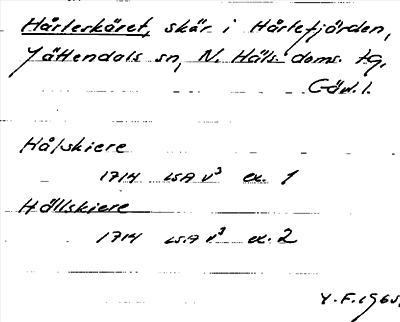 Hårleskäret, skär i Hårlefjärden,
Jättendals sn, N. Häls. doms. tg,
Gävl. l.
Hålskiere
1714 LSA V³ ex. 1
Hällskiere
1714 LSA V³ ex. 2
Y. F. 1965.